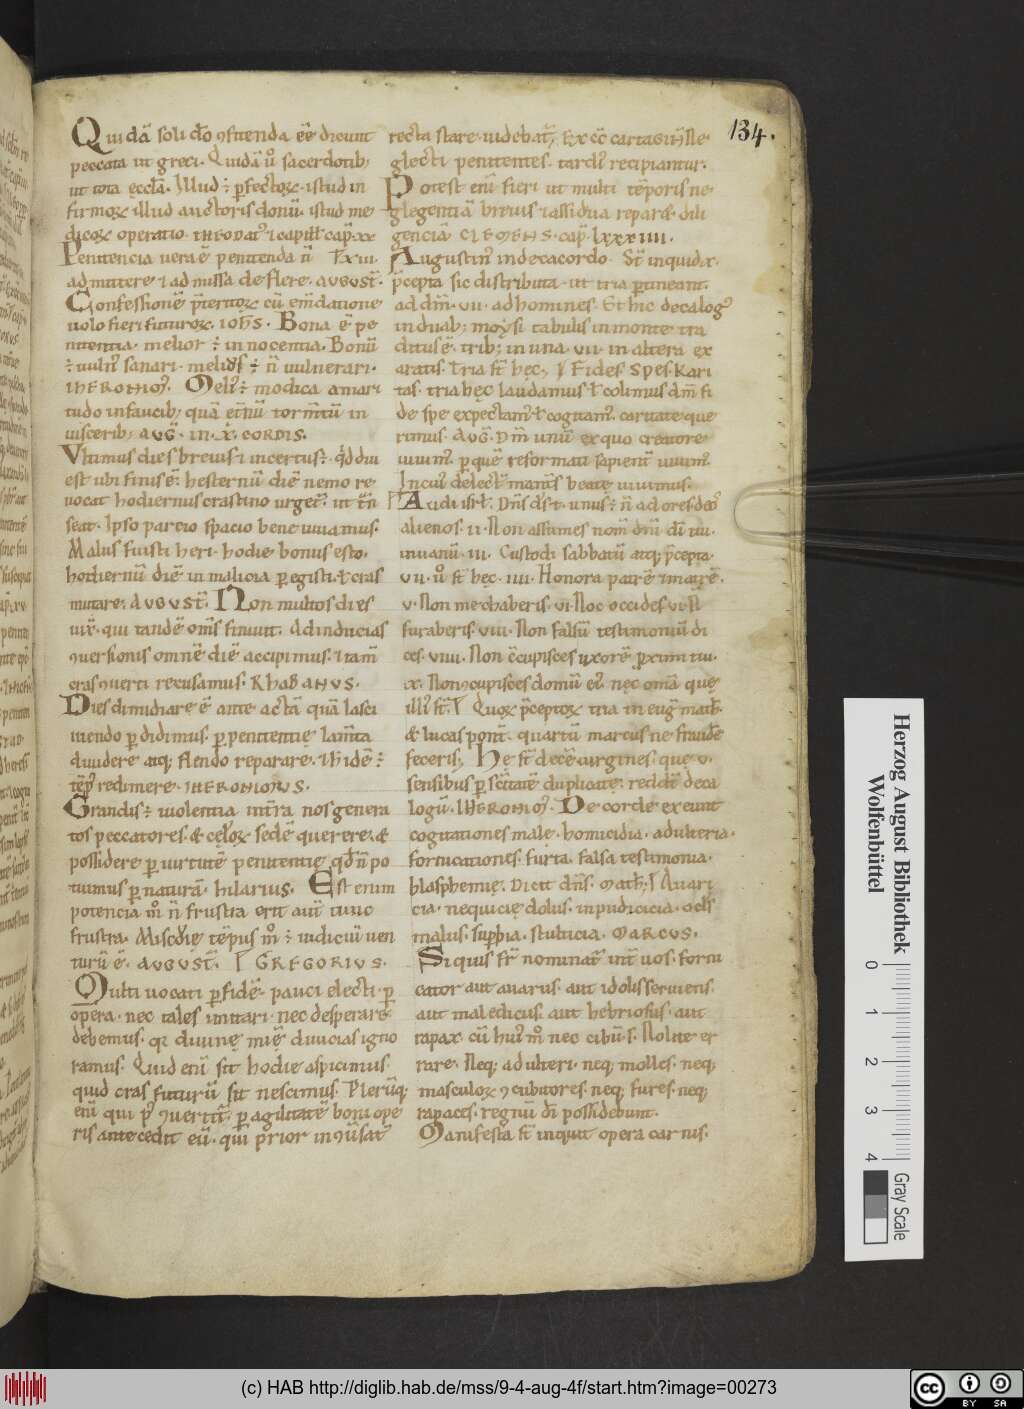 134.
Quidā soli dō ɔfitenda eē dicunt
peccata ut greci. Quidā ů sacerdotib;
ut tota ęccła. Illud ÷ ꝑfectoꝝ. istud in
firmoꝝ illud auctoris donū. istud me
dicoꝝ operatio.
Penitencia uera ē penitenda ñ
admittere ⁊ admissa deflere. AUGUST̄.
Confessionē p̄teritoꝝ cū em̄datione
uolo fieri futuroꝝ. IOH̄S. Bona ē pe
nitentia. melior ÷ innocentia. Bonū
÷ uulň sanari. melius ÷ ñ uulnerari.
IHERONIM'. Meli' ÷ modica amari
tudo in faucib; quā etňū torm̄tū in
uiscerib; AUḠ. IN. X. CORDIS.
Vltimus dies breuis ⁊ incertus ÷.
est ubi finis ē. hesternū diē nemo re
uocat hodiernus crastino urget'. ut
seat. Ipso paruo spacio bene uiuamus.
Malus fuisti heri. hodie bonus esto.
hodiernū diē in malicia ꝑegisti. ł cras
mutare. AUGUST̄. Non multos dies
uix. qui tandē om̄s finiunt. Ad inducias
ɔuersionis omnē diē accipimus. ⁊ tam̄
cras ɔuerti recusamus. RHABANUS.
Dies dimidiare ē ante actā quā lasci
uiendo ꝑdidimus. ꝑ penitentię lam̄ta
diuidere atq; flendo reparare. ⁊ hidē ÷
tēp' redimere. IHERONIMUS.
Grandis ÷ uiolentia int̄ra nos genera
tos peccatores. & cęloꝝ sedē querere. &
possidere ꝑ uirtutē penitentię qd̄ ñ po
tuimus ꝑ naturā. hilarius. Est enim
potencia m̊ ñ frustra erit aut̄ tunc
frustra. Miscdię tēpus m̊ ÷ iudiciū uen
turū ē. AUGUST̄. GREGORIUS.
Multi uocati ꝑ fidē. pauci electi. ꝑ
opera. nec tales imitari. nec desperare
debemus. qꝛ diuinę mię diuicias igno
ramus. Quid enī sit hodie aspicimus.
quid cras futurū sit nescimus. Plerūq;
enī qui p' ɔuertit̄. ꝑ agilitatē boni ope
ris antecedit eū. qui prior in ɔūsat'
recta stare uidebat̄; Ex cc̄ cartaginsi Ne
glecti penitentes. tardi' recipiantur.
Potest enī fieri ut multi tēporis ne
glegentiā breuis ⁊ assidua reparet dili
gencia. CLEMENS. cap. lxxxiiii.
Augustin' in decacordo. St̄ inquid. x.
p̄cepta sic distributa. ut tria ꝑtineant.
ad dm̄. vii. ad homines. Et hic decalog'
in duab; moysi tabulis in monte tra
ditus ē. trib; in una. vii. in altera ex
aratis. Tria st̄ hęc. Fides. Spes. Kari
tas. tria hęc laudamus ł colimus dm̄ fi
de spe expectam' ł cogitam'. caritate que
rimus. AUḠ. Dm̄ unū ex quo creatore
uiuim'. ꝑ quē reformati sapient̄ uiuim'.
In cui' delect̄ manēs beate uiuimus.
Audi isrł. Dn̄s d̄s t. unus ÷ ñ adores deos
alienos. ii. Non assumes nom̄ dm̄i dī tui.
in uanū. iii. Custodi sabbatū atq; p̄cepta.
vii. ů st̄ hęc. iiii. Honora patrē ⁊ matrē.
v. Non mechaberis. vi. Non occides vii. N
furaberis viii. Non falsū testimoniū di
ces. viiii. Non ɔcupisces uxorē ꝑximi tui.
x. Non ɔcupisces domū ei'. nec om̄a quę
illi' st̄. Quoꝝ p̄ceptoꝝ tria in euḡ math̄.
& lucas ponit. quartū marcus ne fraudē
feceris; Hę st̄ decē uirgines. quę v.
sensibus ꝑ sc̄itatē duplicatę. redd̄t deca
logū. IHERONIM'. De corde exeunt
cogitationes malę. homicidia. adulteria.
fornicationes. furta. falsa testimonia.
blasphemię. Dicit dn̄s. Math̄; Auari
cia. nequicię dolus. inpudicicia. ocłs
malus. supbia. stulticia. MARCUS.
Si quis fr̄ nominat̄ int̄ uos. forni
cator aut auarus. aut idolis seruiens.
aut maledicus. aut hebriosus. aut
rapax. cū hui' m̊i nec cibū s. Nolite er
rare. Neq; adulteri. neq; molles. neq;
masculoꝝ ɔcubitores. neq; fures. neq;
rapaces. regnū dī possidebunt.
Manifesta st̄ inquit opera carnis.
Herzog August Bibliothek
Wolfenbüttel
0 1 2 3 4
Gray Scale
(c) HAB http://diglib.hab.de/mss/9-4-aug-4f/start.htm?image=00273
cc BY SA